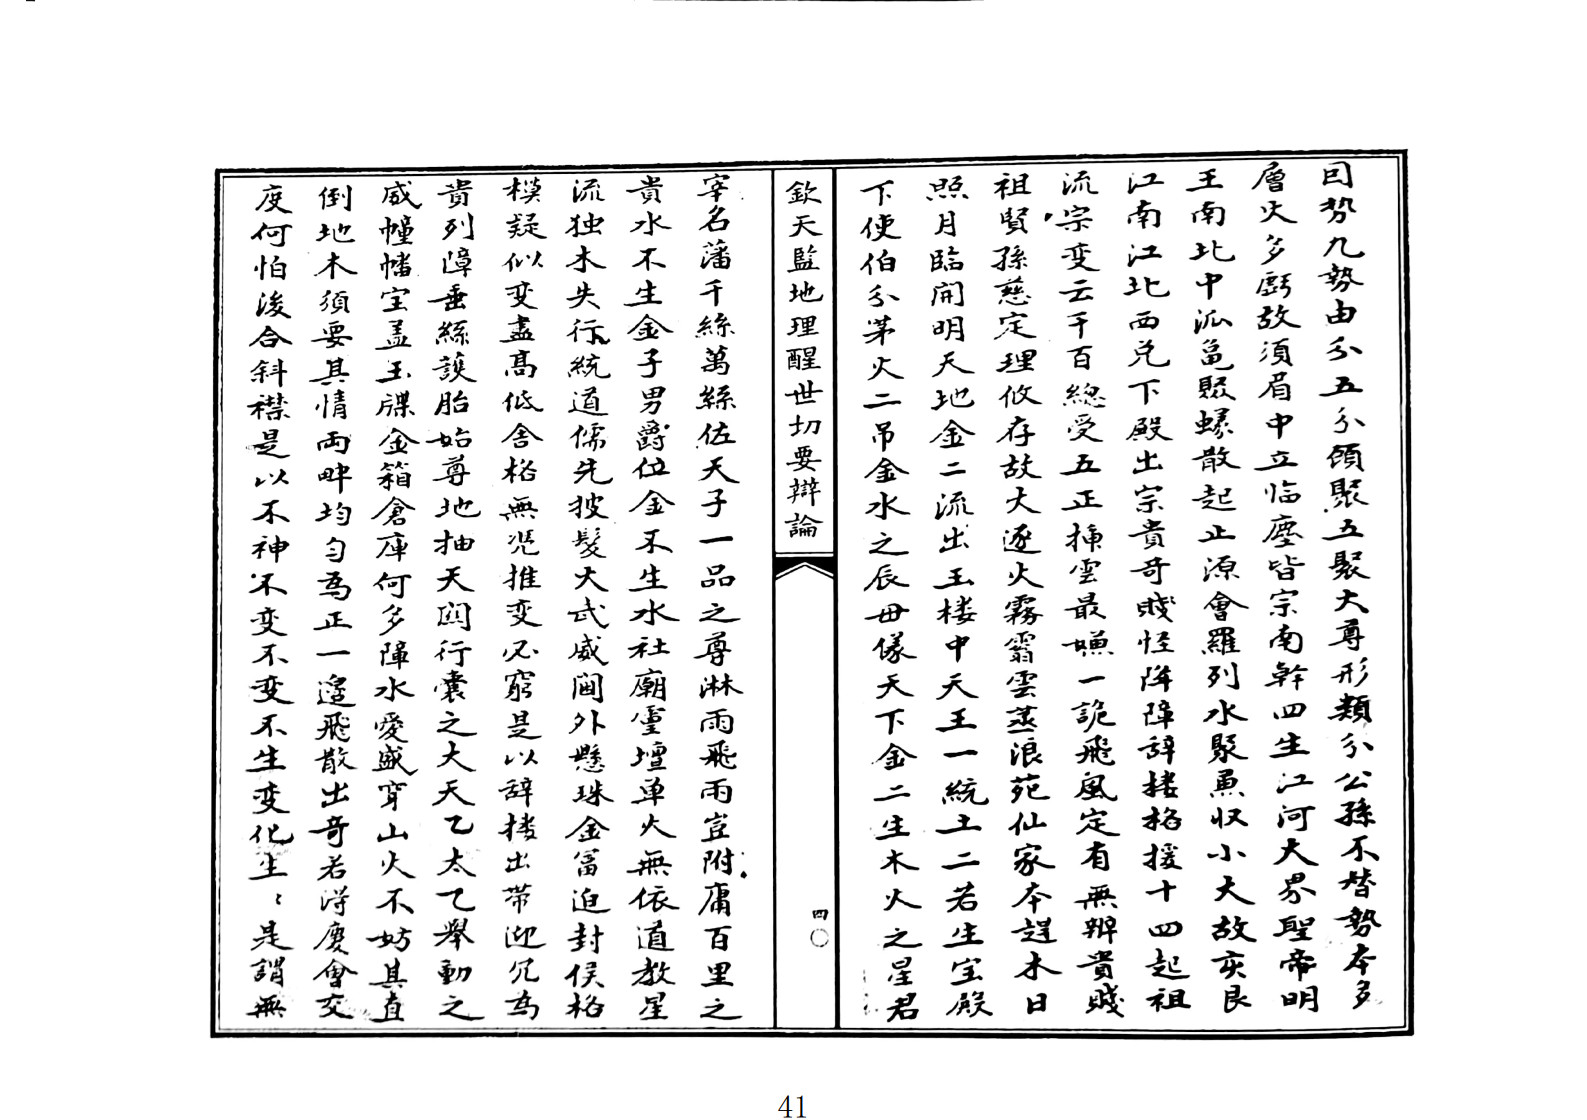 囙势九勢由分五分領聚五聚大尊形類分公孫不替勢本多
層火多虧故須眉中立临塵皆宗南幹四生江河大界聖帝明
王南北中派邕聚螺散起止源會羅列水聚魚収小大故亥艮
江南江北西兌下殿出宗貴奇賎怪陣障辞楼格援十四起祖
流宗变云千百總受五正揷雲最嫌一詭飛風定有無辨貴賎
祖賢孫慈定理攸存故大逐火霧霜雲蒸浪苑仙家本趕木日
照月臨開明天地金二流出玉楼中天王一統土二若生宝殿
下使伯分茅火二吊金水之辰毋儀天下金二生木火之星君
欽天監地理醒世切要辯論
四〇
宰名藩千絲萬絲佐天子一品之尊淋雨飛雨豈附庸百里之
貴水不生金子男爵位金不生水社廟霊壇单火無依道教星
流独木失行統道儒先披髮大武威闽外懸珠金冨迫封侯格
模疑似变盡髙低舍格無凭推变不窮是以辞楼出带迎兄為
貴列障垂絲護胎始尊地抽天関行囊之大天乙太乙舉動之
威幢幡宝盖玉牒金箱倉庫何多障水愛盛穿山火不妨其直
倒地木須要其情両畔均匀為正一邊飛散出奇若得慶會交
度何怕淩合斜襟是以不神不变不变不生变化生〻是謂無